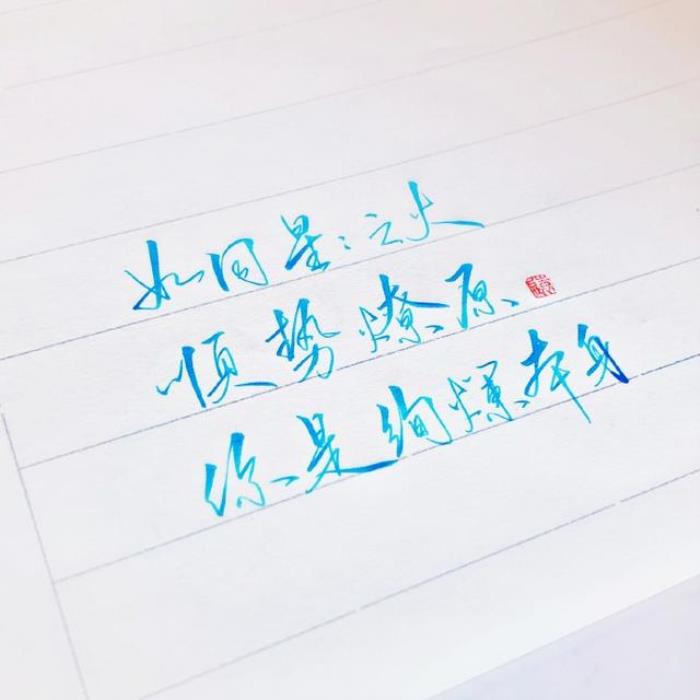 如同星:之火
顺势燎原
你是绚烂本身